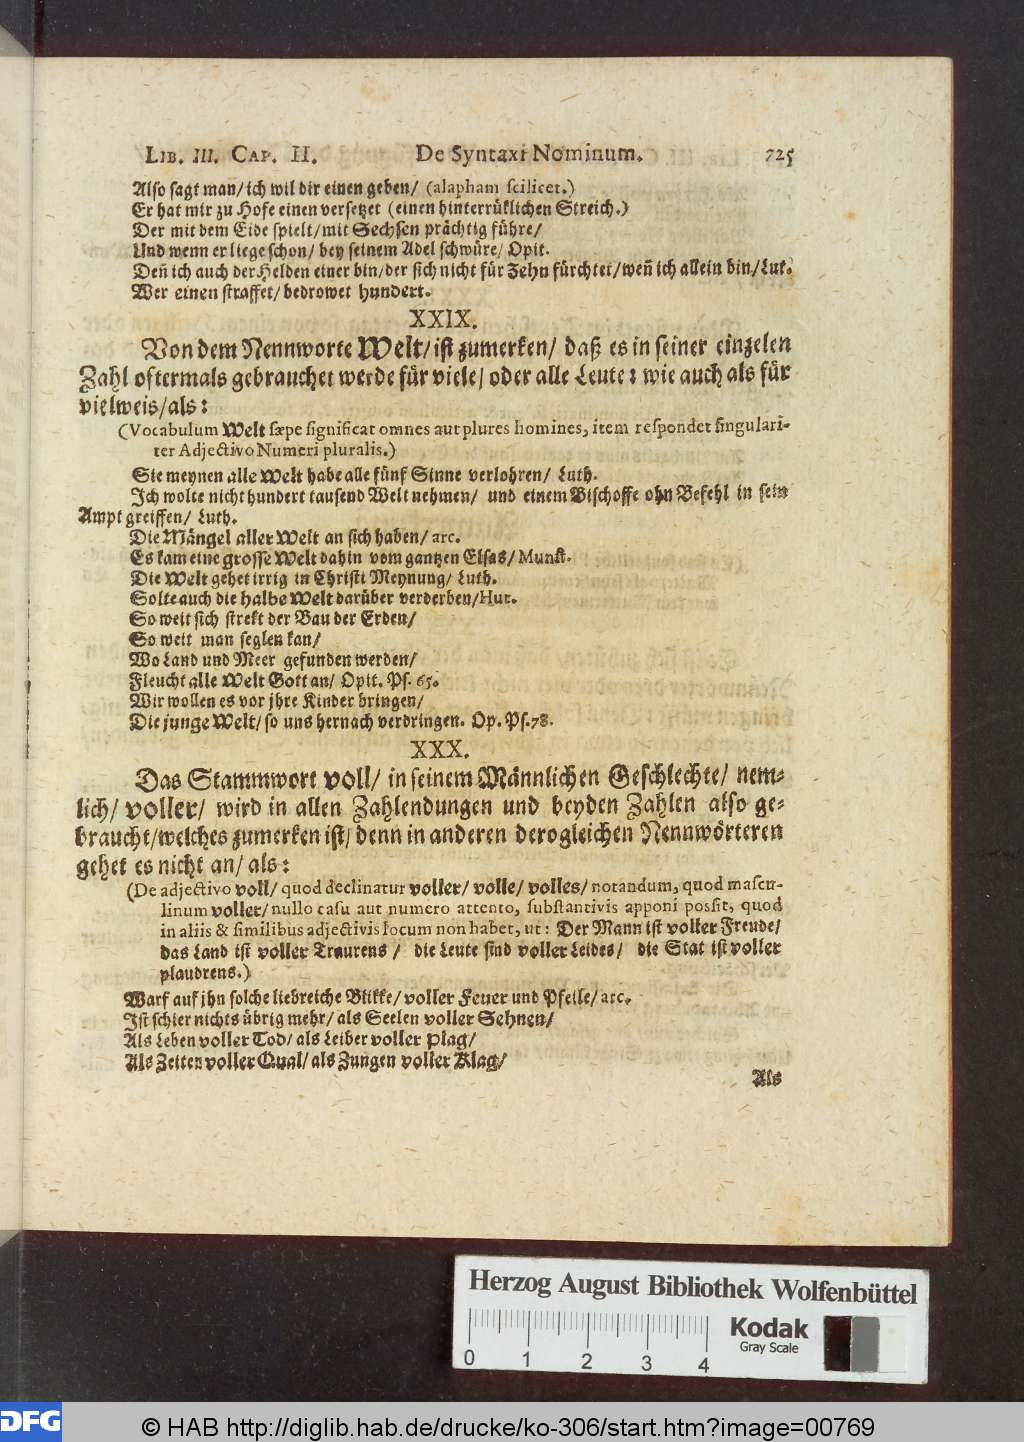 LIB. III. CAP. II. De Syntaxi Nominum. 725
Also sagt man/ ich wil dir einen geben/ (alapham scilicet.)
Er hat mir zu Hofe einen versetzet (einen hinterrüklichen Streich.)
Der mit dem Eide spielt/ mit Sechsen prächtig führe/
Und wenn er liege schon/ bey seinem Adel schwüre/ Opit.
Deñ ich auch der Helden einer bin/ der sich nicht für Zehn fürchtet/ weñ ich allein bin/ Luk.
Wer einen straffet/ bedrowet hundert.
XXIX.
Von dem Nennworte Welt/ ist zumerken/ daß es in seiner einzelen
Zahl oftermals gebrauchet werde für viele/ oder alle Leute: wie auch als für
vielweis/ als:
(Vocabulum Welt sæpe significat omnes aut plures homines, item respondet singulari-
ter Adjectivo Numeri pluralis.)
Sie meynen alle Welt habe alle fünf Sinne verlohren/ Luth.
Ich wolte nicht hundert tausend Welt nehmen/ und einem Bischoffe ohn Befehl in sein
Ampt greiffen/ Luth.
Die Mängel aller Welt an sich haben/ arc.
Es kam eine grosse Welt dahin vom gantzen Elsas/ Munst.
Die Welt gehet irrig in Christi Meynung/ Luth.
Solte auch die halbe Welt darüber verderben/ Hut.
So weit sich strekt der Bau der Erden/
So weit man seglen kan/
Wo Land und Meer gefunden werden/
Fleucht alle Welt Gott an/ Opit. Ps. 65.
Wir wollen es vor jhre Kinder bringen/
Die junge Welt/ so uns hernach verdringen. Op. Ps. 78.
XXX.
Das Stammwort voll/ in seinem Männlichen Geschlechte/ nem-
lich/ voller/ wird in allen Zahlendungen und beyden Zahlen also ge-
braucht/ welches zumerken ist/ denn in anderen derogleichen Nennwörteren
gehet es nicht an/ als:
(De adjectivo voll/ quod declinatur voller/ volle/ volles/ notandum, quod mascu-
linum voller/ nullo casu aut numero attento, substantivis apponi possit, quod
in aliis & similibus adjectivis locum non habet, ut: Der Mann ist voller Freude/
das Land ist voller Traurens / die Leute sind voller Leides/ die Stat ist voller
plaudrens.)
Warf auf jhn solche liebreiche Blikke/ voller Feuer und Pfeile/ arc.
Ist schier nichts übrig mehr/ als Seelen voller Sehnen/
Als Leben voller Tod/ als Leiber voller Plag/
Als Zeiten voller Qual/ als Zungen voller Klag/
Als
Herzog August Bibliothek Wolfenbüttel
0 1 2 3 4
Kodak
Gray Scale
DFG
© HAB http://diglib.hab.de/drucke/ko-306/start.htm?image=00769